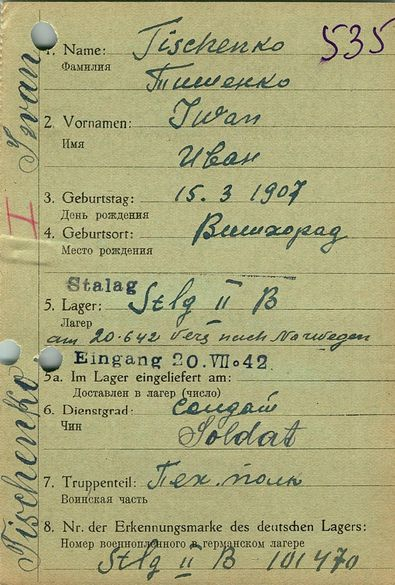 535
1. Name: Tischenko
Фамилия
Тишенко
2. Vornamen: Iwan
Имя
Иван
3. Geburtstag: 15. 3 1907
День рождения
4. Geburtsort: Вишхорад
Место рождения
Stalag
5. Lager: Stlg II B
Лагер
am 20.6.42 Vers nach Norwegen
Eingang 20.VII.42
5a. Im Lager eingeliefert am:
Доставлен в лагер (число)
6. Dienstgrad: солдат
Чин
Soldat
7. Truppenteil: Пех. полк
Воинская часть
8. Nr. der Erkennungsmarke des deutschen Lagers:
Номер военнопленного в германском лагере
Stlg II B 101470
Tischenko Iwan
I